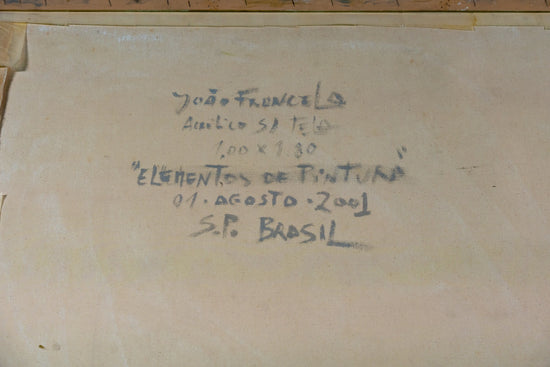 JOÃO FRANCELO
Acrílico S/ TELA
1,00 x 1,30
"ELEMENTOS DE PINTURA"
01. AGOSTO. 2001
S.P. BRASIL